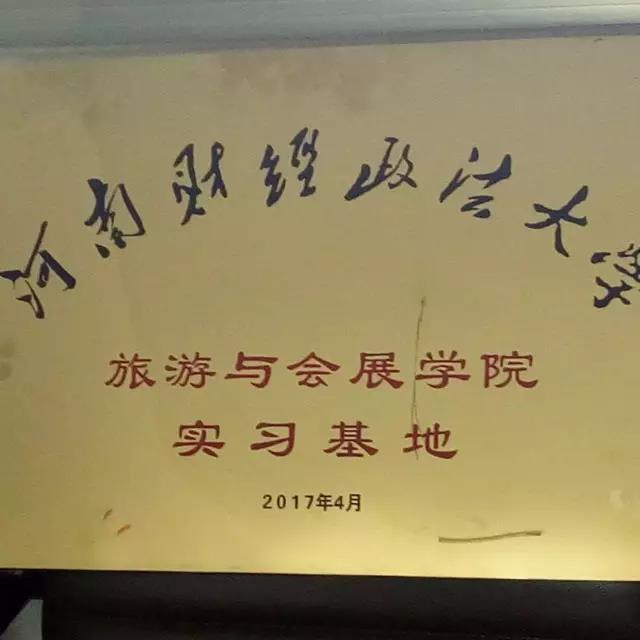 河南财经政法大学
旅游与会展学院
实习基地
2017年4月